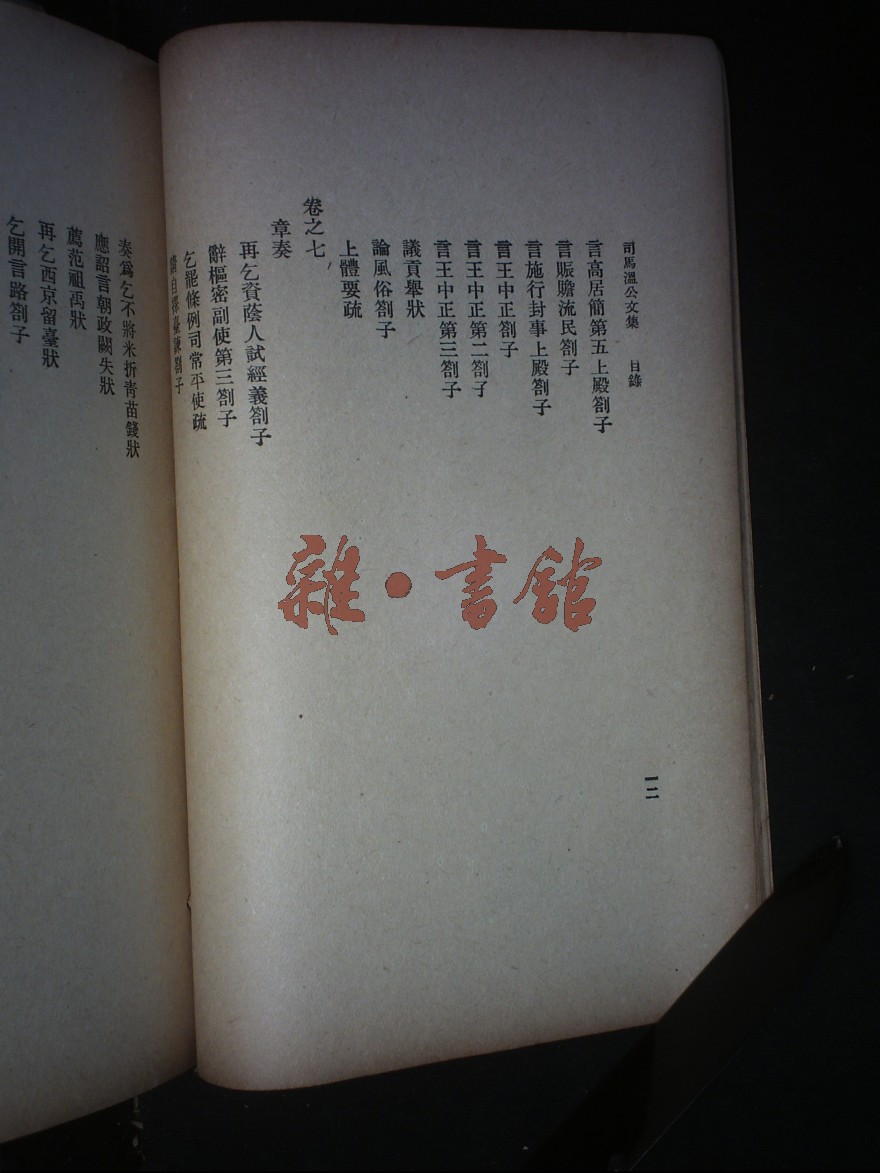 司馬溫公文集 目錄
言高居簡第五上殿劄子
言賑贍流民劄子
言施行封事上殿劄子
言王中正劄子
言王中正第二劄子
言王中正第三劄子
議貢舉狀
論風俗劄子
上體要疏
卷之七
章奏
再乞資蔭人試經義劄子
辭樞密副使第三劄子
乞罷條例司常平使疏
自擇臺諫劄子
一二
奏爲乞不將米折靑苗錢狀
應詔言朝政闕失狀
薦范祖禹狀
再乞西京留臺狀
乞開言路劄子
雜·書館